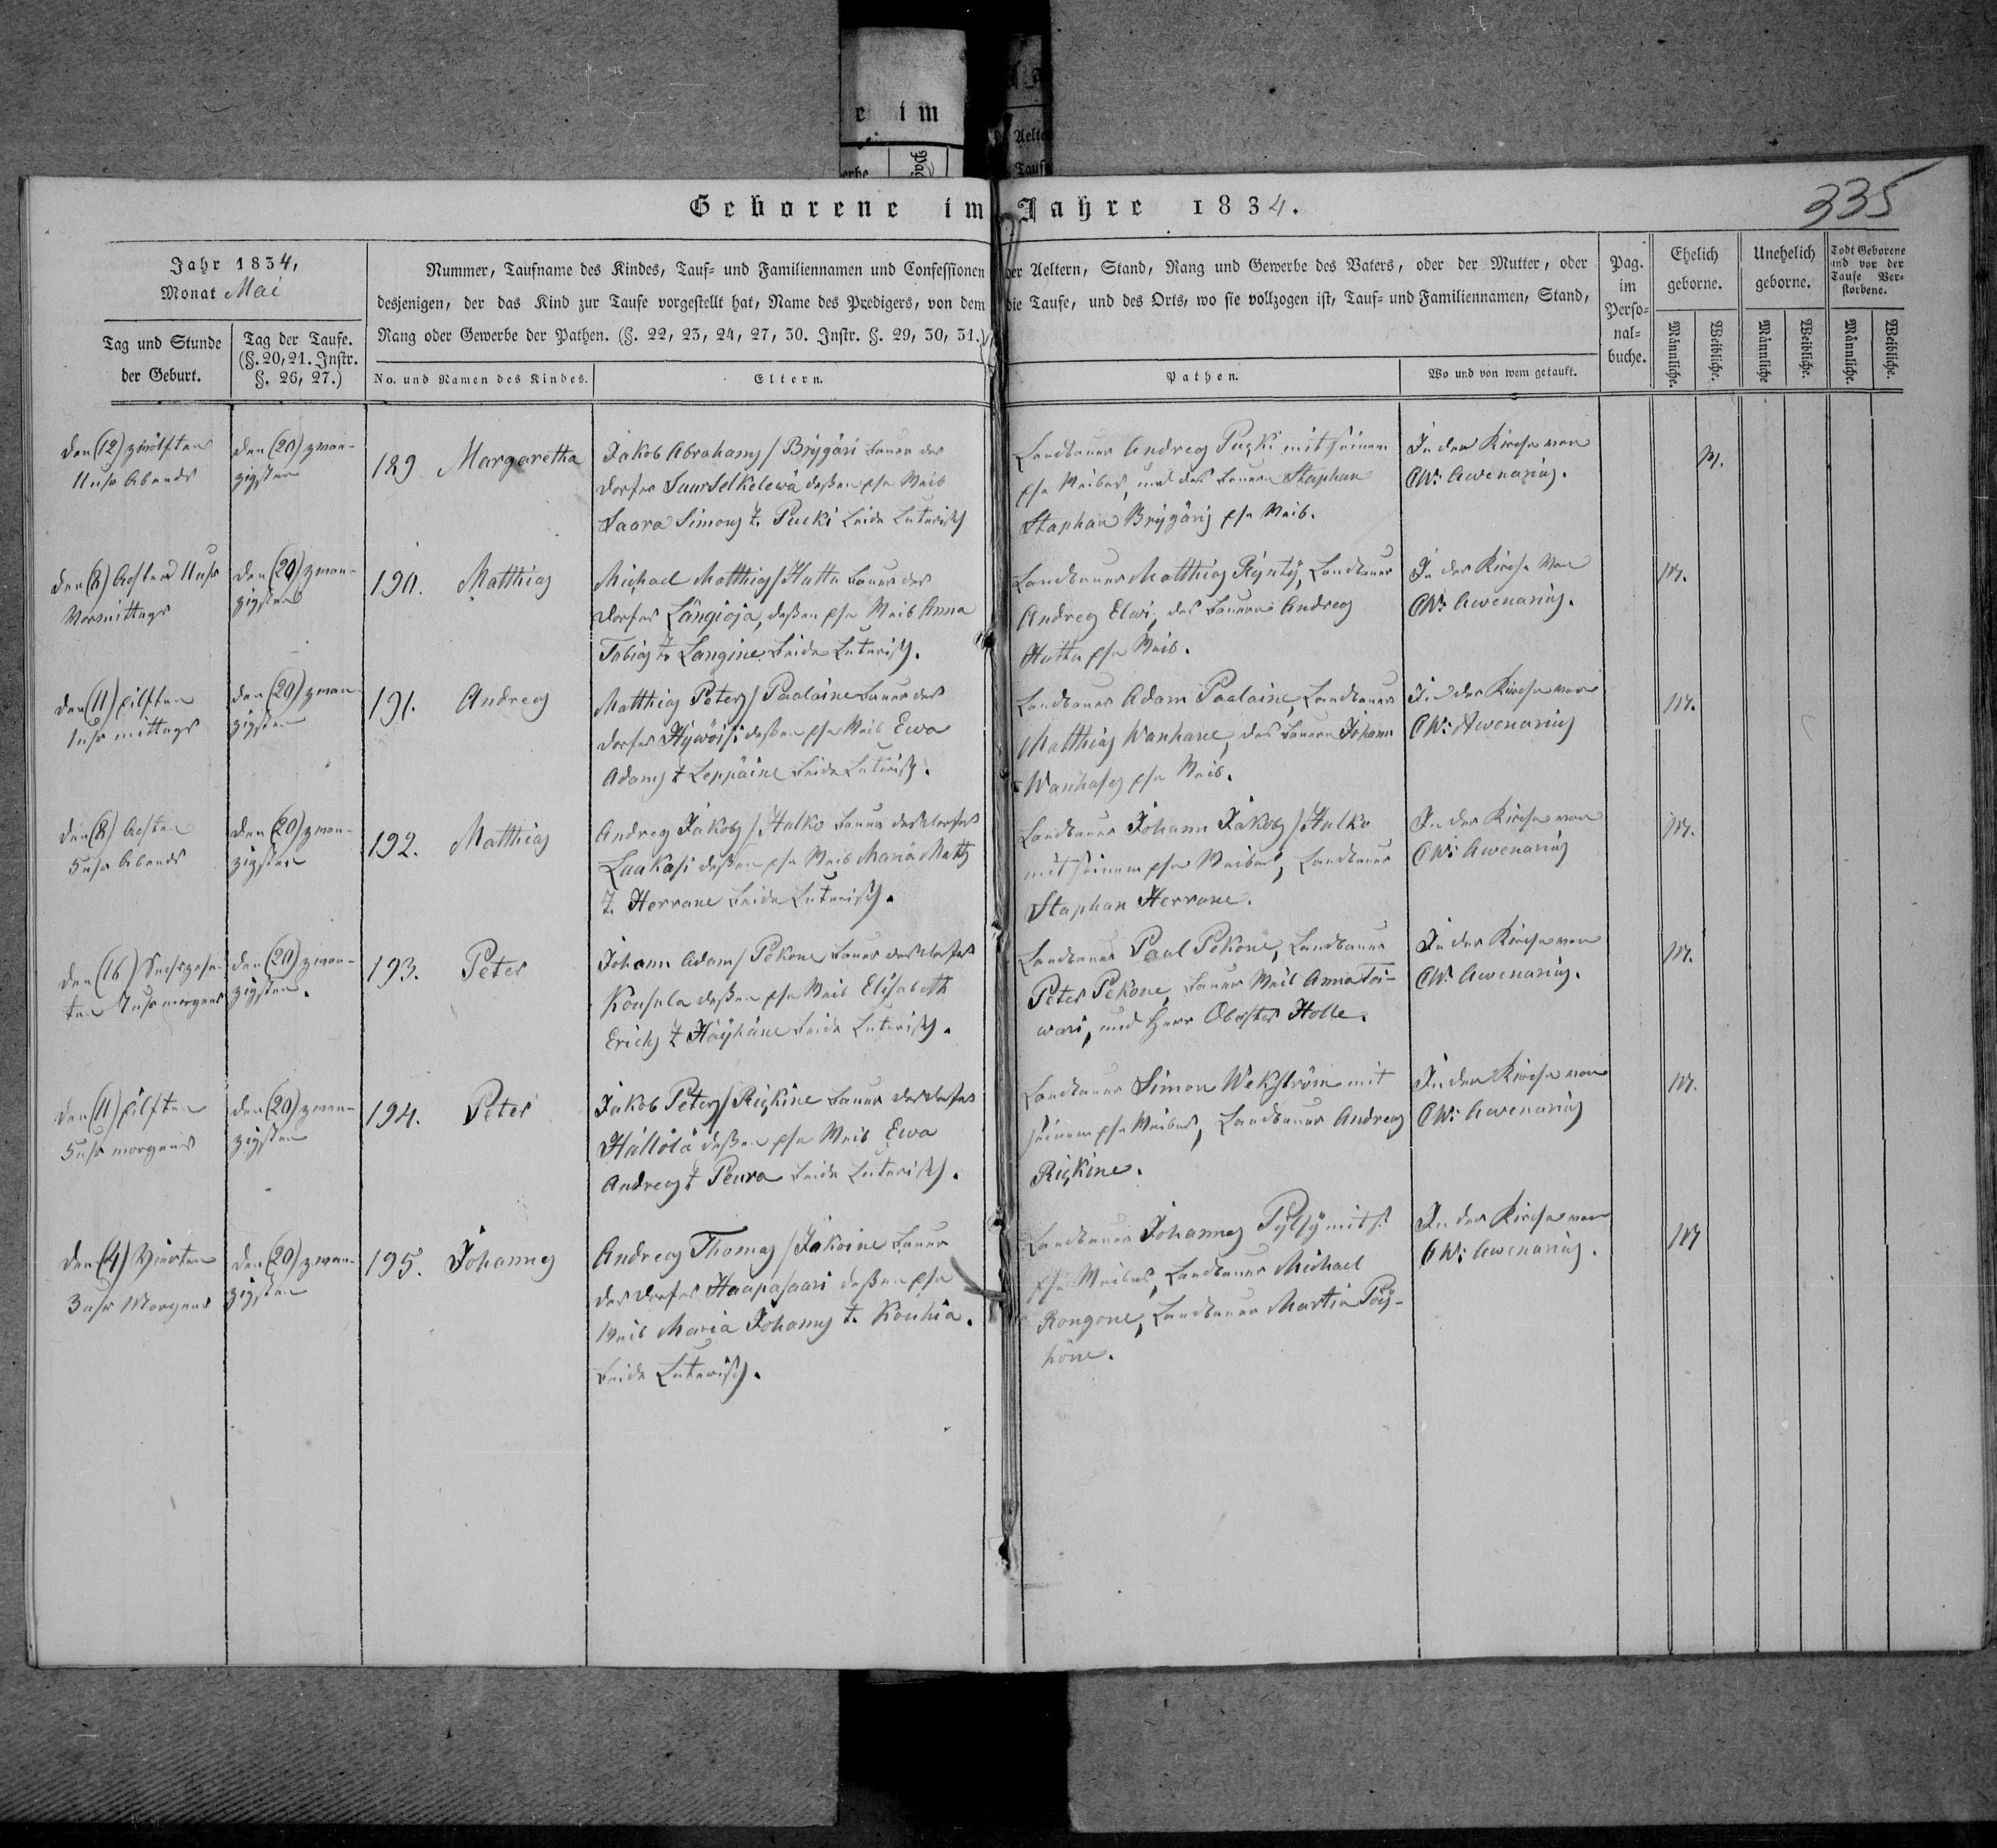 e im
Aelte
erbe
Tauf
Geborene im Jahre 1834.
335
Jahr 1834,
Monat Mai
Tag und Stunde
der Geburt.
Tag der Taufe.
(§. 20, 21. Instr.
§. 26, 27.)
Nummer, Taufname des Kindes, Tauf- und Familiennamen und Confessionen der Aeltern, Stand, Rang und Gewerbe des Vaters, oder der Mutter, oder
desjenigen, der das Kind zur Taufe vorgestellt hat, Name des Predigers, von dem die Taufe, und des Orts, wo sie vollzogen ist, Tauf- und Familiennamen, Stand,
Rang oder Gewerbe der Pathen. (§. 22, 23, 24, 27, 30. Instr. §. 29, 30, 31.)
No. und Namen des Kindes.
Eltern.
Pathen.
Wo und von wem getauft.
Pag.
im
Perso-
nal-
buche.
Ehelich
geborne.
Unehelich
geborne.
Todt Geborene
und vor der
Taufe Ver-
storbene.
Männliche.
Weibliche.
Männliche
Weibliche.
Männliche.
Weibliche.
den (12) zwölften
11 uhr Abends
den (20) zwan-
zigsten
189 Margaretha
Jakob Abrahams / Brijgäri Bauer des
dorfes Suurselkelewä, deßen ehe Weib
Saara Simons t. Pucki beide Luterisch
Landbauer Andreas Puski mit seinem
ehe Weibes, und des Bauern Staphan
Staphan Brijgäris ehe Weib.
In der Kirche von
C W: Awenarius.
M.
den (8) Achten 11 uhr
Vormittags
den (20) zwan-
zigsten
190. Matthias
Michael Matthias / Hutta Bauer des
dorfes Längioja, deßen ehe Weib Anna
Tobias t. Langine. Beide Luterisch.
Landbauer Matthias Rÿntÿ, Landbauer
Andreas Elwi, des Bauern Andreas
Hutta ehe Weib.
In der Kirche von
C W: Awenarius.
M.
den (11) Eilften
1 uhr mittags
den (20) zwan-
zigsten
191. Andreas
Matthias Peters / Paalaine Bauer des
dorfes Hÿwöisi deßen ehe Weib Ewa
Adams t Leppäine beide Luterisch.
Landbauer Adam Paalaine, Landbauer
Matthias Wanhane, des Bauern Johann
Wanhases ehe Weib.
In der Kirche von
C W: Awenarius
M.
den (8) Achten
5 uhr Abends
den (20) zwan-
zigsten
192. Matthias
Andreas Jakobs / Hulko Bauer des dorfes
Luukasi deßen ehe Weib Maria Matts
t. Herrane beide Luterisch.
Landbauer Johann Jakobs / Hulko
mit seinem ehe Weibes, Landbauer
Staphan Herrane.
In der Kirche von
C W: Awenarius
M.
den (16) Sechszehn-
ten 7 uhr morgens
den (20) zwan-
zigsten.
193. Peter
Johann Adams / Pekone Bauer des dorfes
Konsula deßen ehe Weib Elisabeth
Erichs t Häÿhäne beide Luterisch.
Landbauer Paal Pekone, Landbauer
Peter Pekone, Bauer Weib Anna Toi-
wari, und Herr Oberster Holle.
In der Kirche von
C W: Awenarius.
M.
den (11) Eilften
5 uhr morgens
den (20) zwan-
zigsten
194. Peter
Jakob Peters / Riskine Bauer des dorfes
Hällölä deßen ehe Weib Ewa
Andreas t Peura beide Luterisch.
Landbauer Simon Wekström mit
seinem ehe Weibes, Landbauer Andreas
Riskine.
In der Kirche von
C W: Awenarius
M.
den (4) Vierten
3 uhr Morgens
den (20) zwan-
zigsten
195. Johannes
Andreas Thomas / Jakoine Bauer
des dorfes Haapasaari deßen ehe
Weib Maria Johannes t. Kouhia.
beide Luterisch.
Landbauer Johannes Pÿlsÿ mit s.
ehe Weibes, Landbauer Michael
Rongone, Landbauer Martin Pöÿ-
höne.
In der Kirche von
C W: Awenarius.
M